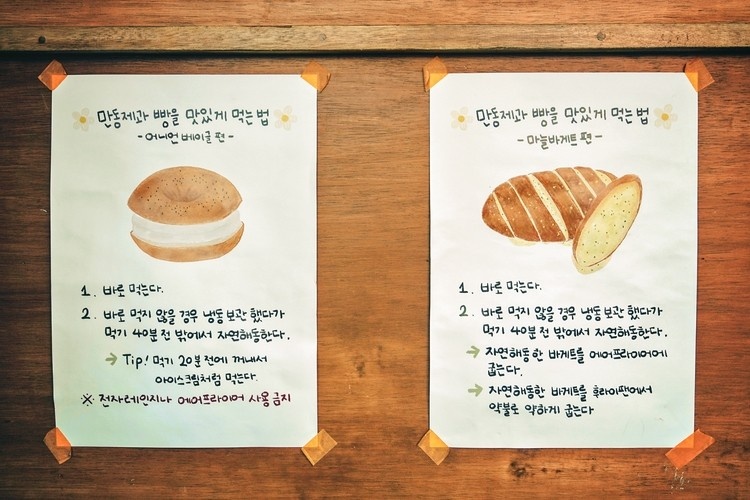 만동제과 빵을 맛있게 먹는 법
- 어니언 베이글 편 -
1. 바로 먹는다.
2. 바로 먹지 않을 경우 냉동 보관 했다가
먹기 40분 전 밖에서 자연해동한다.
→ Tip! 먹기 20분 전에 꺼내서
아이스크림처럼 먹는다.
※ 전자레인지나 에어프라이어 사용 금지
만동제과 빵을 맛있게 먹는 법
- 마늘바게트 편 -
1. 바로 먹는다.
2. 바로 먹지 않을 경우 냉동 보관 했다가
먹기 40분 전 밖에서 자연해동한다.
→ 자연해동한 바게트를 에어프라이어에
굽는다.
→ 자연해동한 바게트를 후라이팬에서
약불로 약하게 굽는다